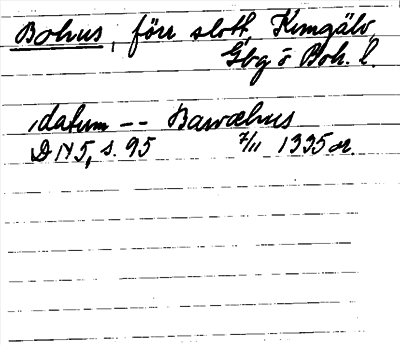 Bohus, förr slott, Kungälv,
Gbg o Boh. l.
datum -- Bawahus
DN 5, s. 95 7/11 1335 or.